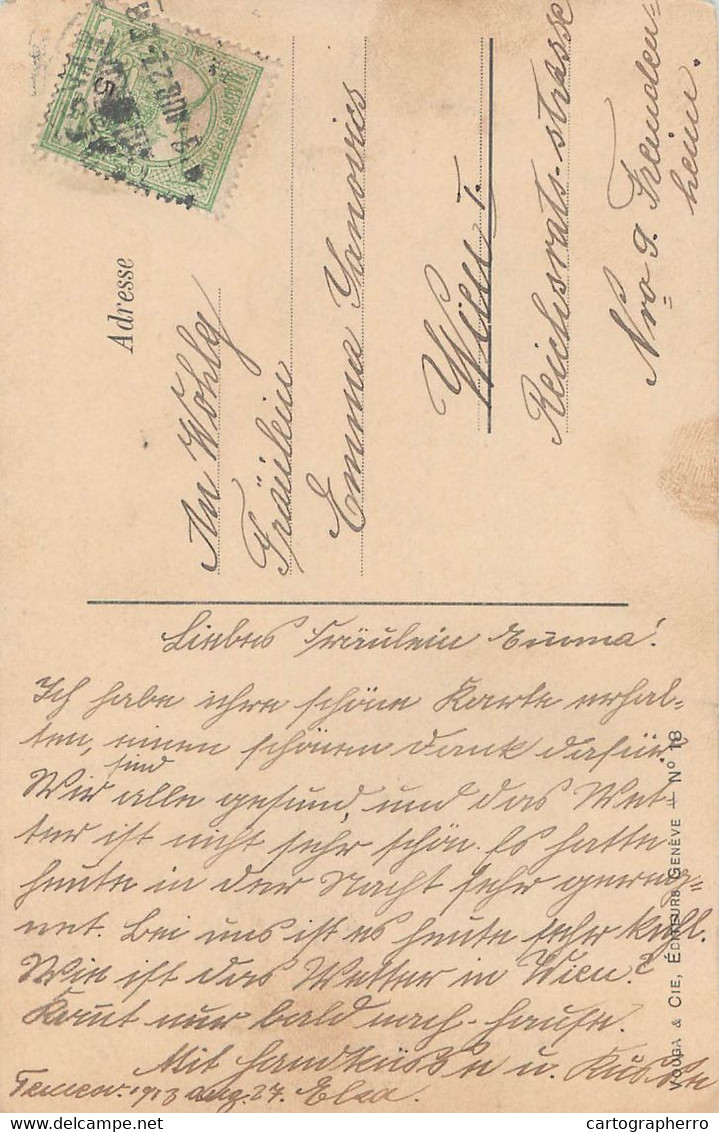 Adresse
An Wohlg
Fräulein
Emma Yanovics
Wien I.
Reichsrats-strasse
Nro 9. Freinden-
heim.
Liebes Fräulein Emma!
Ich habe ihre schöne Karte erhal-
ten, einen schönen Dank dafür,
Wir sind alle gesund, und das Wet-
ter ist nicht sehr schön. Es hatte
heute in der Nacht sehr gereg-
net. Bei uns ist es heute sehr kühl.
Wie ist das Wetter in Wien?
Komt nur bald nach-hause.
Mit Handküsse u. Küsse
1913 aug. 27. Elsa.
VOUGA & CIE, ÉDITEURS GENÈVE — No 18
cartographerro